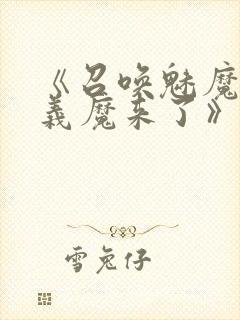 《召唤魅魔
義魔来了》
雪兔仔